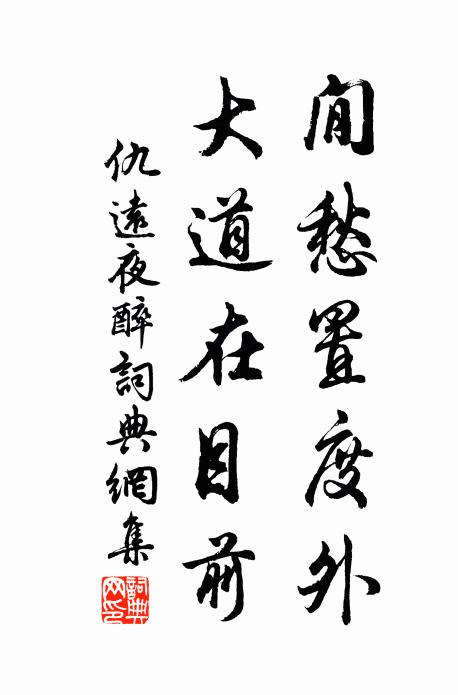 閒愁置度外
大道在目前
仇遠夜醉詞典網集
詞典網印